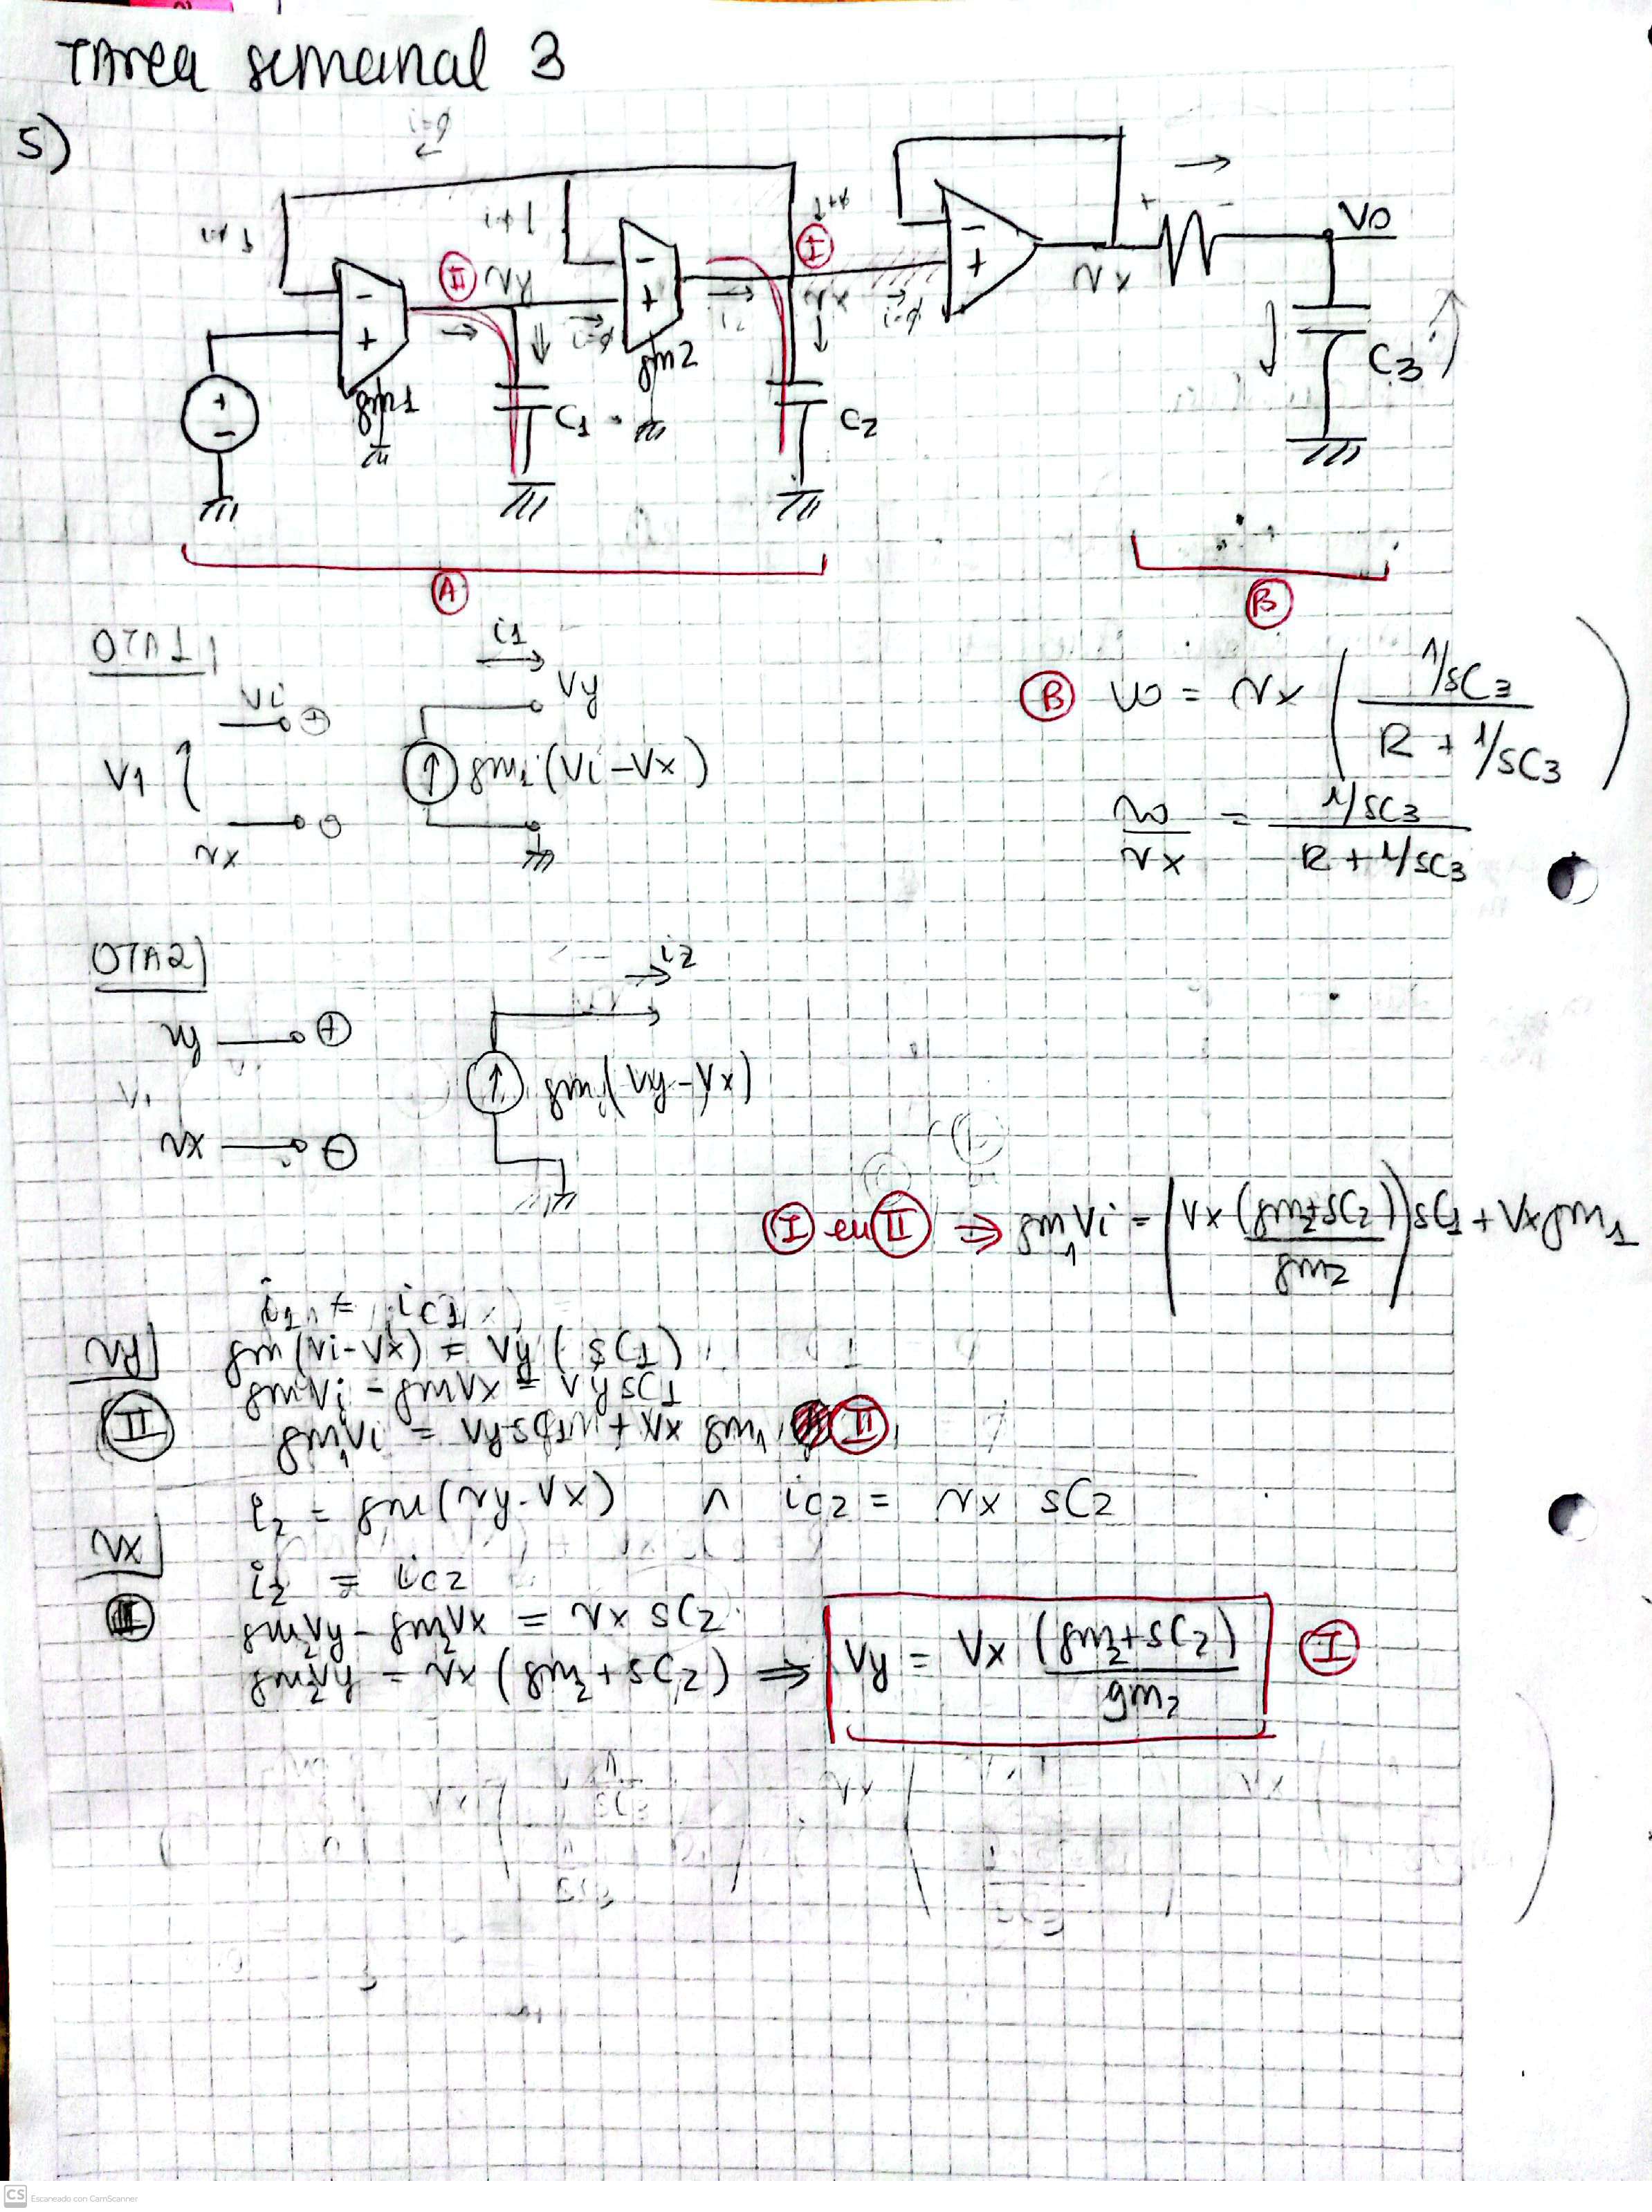 TArea semanal 3
5)
i=∅
i=∅
i=∅
i=∅
II
vy
i=∅
gm1
C1
gm2
i2
I
vx
i=∅
C2
vx
Vo
C3
A
B
OTA1
Vi
V1
vx
i1
Vy
gm1(Vi-Vx)
B vo = vx ( 1/sC3 / (R + 1/sC3) )
vo/vx = 1/sC3 / (R + 1/sC3)
OTA2
vy
V1
vx
i2
gm(Vy-Vx)
I en II ⇒ gm1 Vi = ( Vx (gm2+sC2) / gm2 ) sC1 + Vx gm1
i1 = iC1
vy gm(vi-vx) = vy (sC1)
gmVi - gmVx = vy sC1
II gm1Vi = vy sC1 + Vx gm1 II
i2 = gm(vy-Vx) ∧ iC2 = vx sC2
vx
i2 = iC2
gm2Vy - gm2Vx = vx sC2
gm2Vy = vx (gm2 + sC2) ⇒ Vy = Vx (gm2+sC2) / gm2 I
CS Escaneado con CamScanner